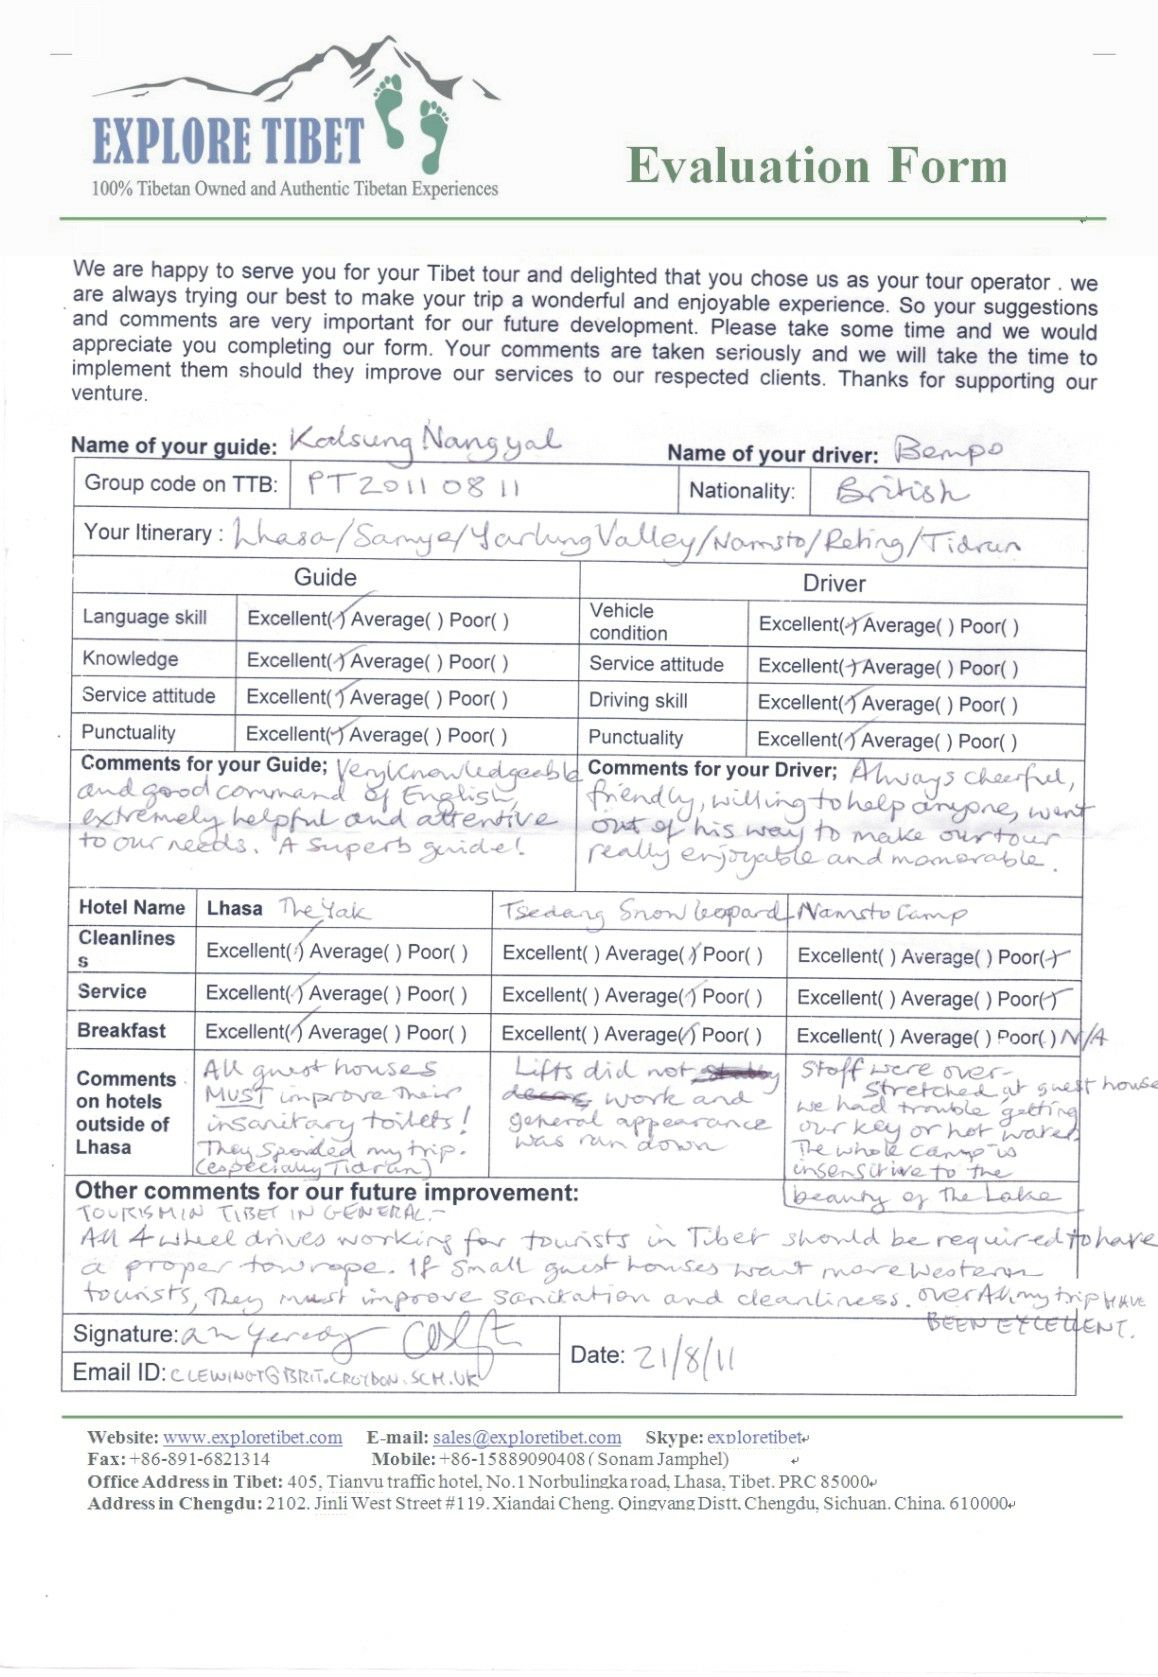 EXPLORE TIBET
100% Tibetan Owned and Authentic Tibetan Experiences
Evaluation Form
We are happy to serve you for your Tibet tour and delighted that you chose us as your tour operator . we
are always trying our best to make your trip a wonderful and enjoyable experience. So your suggestions
and comments are very important for our future development. Please take some time and we would
appreciate you completing our form. Your comments are taken seriously and we will take the time to
implement them should they improve our services to our respected clients. Thanks for supporting our
venture.
Name of your guide: Kalsung Nangyal Name of your driver: Bempo
Group code on TTB: PT20110811 Nationality: British
Your Itinerary : Lhasa/Samye/Yarlung Valley/Namsto/Reting/Tidrun
Guide Driver
Language skill Excellent(✓) Average( ) Poor( ) Vehicle condition Excellent(✓) Average( ) Poor( )
Knowledge Excellent(✓) Average( ) Poor( ) Service attitude Excellent(✓) Average( ) Poor( )
Service attitude Excellent(✓) Average( ) Poor( ) Driving skill Excellent(✓) Average( ) Poor( )
Punctuality Excellent(✓) Average( ) Poor( ) Punctuality Excellent(✓) Average( ) Poor( )
Comments for your Guide; Very Knowledgeable
and good command of English,
extremely helpful and attentive
to our needs. A superb guide!
Comments for your Driver; Always cheerful,
friendly, willing to help anyone, went
out of his way to make our tour
really enjoyable and memorable.
Hotel Name Lhasa The Yak Tsedang Snow Leopard Namsto Camp
Cleanlines
s Excellent(✓) Average( ) Poor( ) Excellent( ) Average(✓) Poor( ) Excellent( ) Average( ) Poor(✓)
Service Excellent(✓) Average( ) Poor( ) Excellent( ) Average(✓) Poor( ) Excellent( ) Average( ) Poor(✓)
Breakfast Excellent(✓) Average( ) Poor( ) Excellent( ) Average(✓) Poor( ) Excellent( ) Average( ) Poor( ) N/A
Comments
on hotels
outside of
Lhasa
All guest houses
MUST improve their
insanitary toilets!
They spoiled my trip.
(especially Tidran)
Lifts did not
work and
general appearance
was run down
Staff were over-
stretched at guest house
we had trouble getting
our key or hot water.
The whole camp is
insensitive to the
beauty of the Lake
Other comments for our future improvement:
TOURISM IN TIBET IN GENERAL:-
All 4 wheel drives working for tourists in Tibet should be required to have
a proper tow rope. If small guest houses want more Western
tourists, They must improve sanitation and cleanliness. OverAll my trip HAVE
BEEN EXCELLENT.
Signature:
Date: 21/8/11
Email ID: CLEWINGT@BRIT.CROYDON.SCH.UK
Website: www.exploretibet.com E-mail: sales@exploretibet.com Skype: exploretibet
Fax: +86-891-6821314 Mobile: +86-15889090408 ( Sonam Jamphel)
Office Address in Tibet: 405, Tianyu traffic hotel, No.1 Norbulingka road, Lhasa, Tibet. PRC 85000
Address in Chengdu: 2102. Jinli West Street #119. Xiandai Cheng. Qingyang Distt. Chengdu, Sichuan. China. 610000